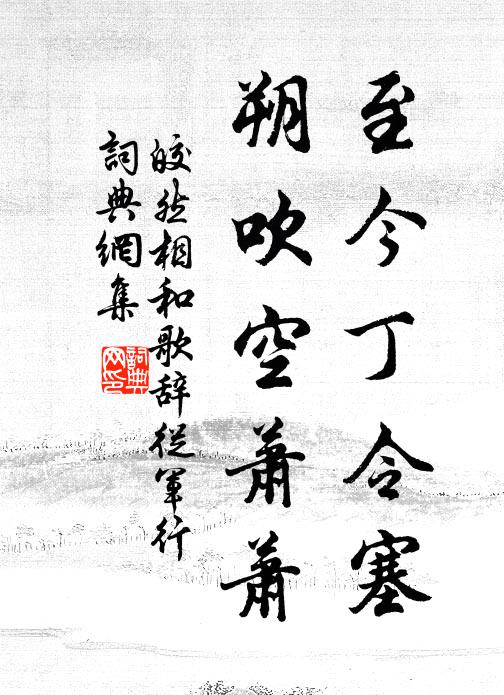 至今丁令塞
朔吹空蕭蕭
皎然相和歌辞從軍行
詞典網集
詞典
网印